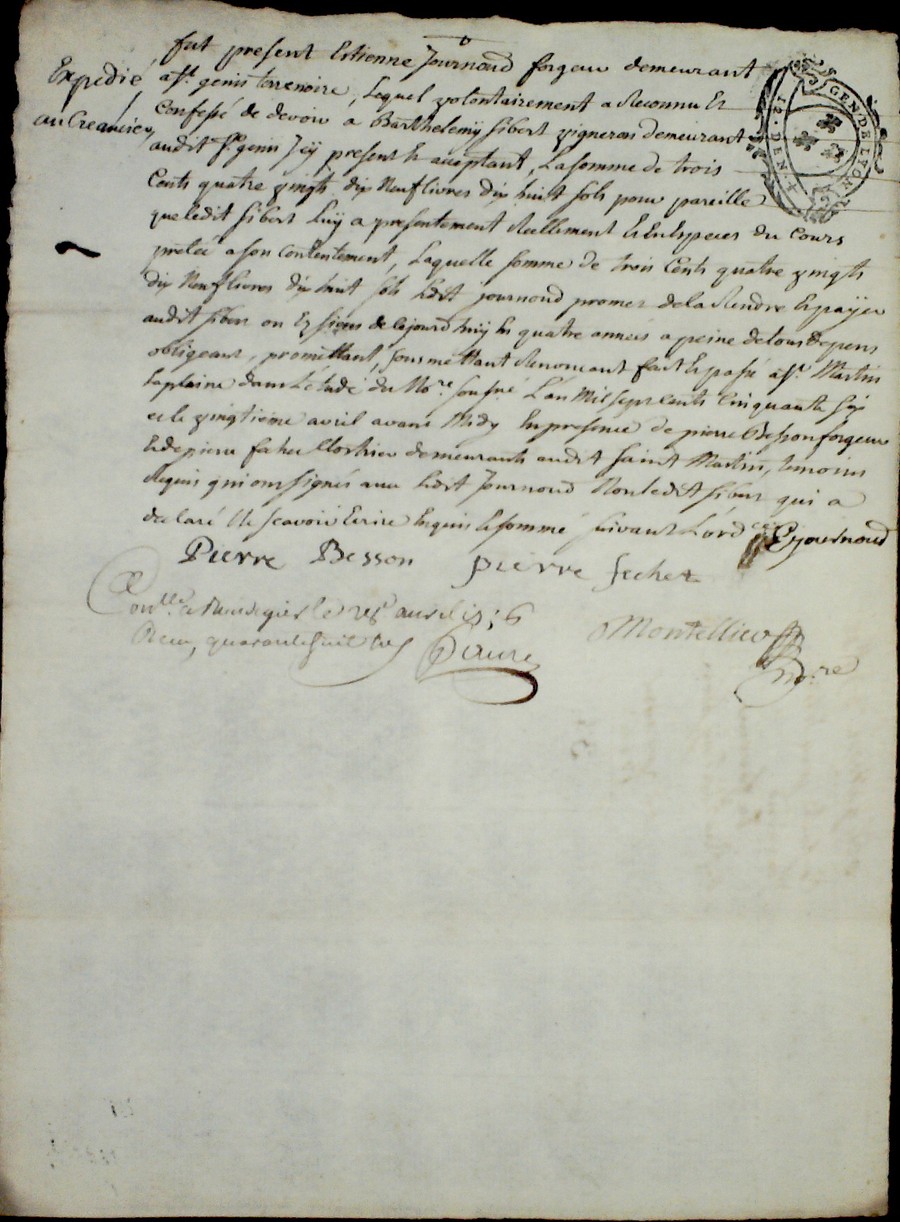 fut present Estienne Journoud forgeur demeurant
Expedié
au Creancier
a st. genis terrenoire, Lequel volontairement a Reconnu Et
Confessé de devoir a Barthelemy sibert vigneron demeurant
audit st genis Icy present Et acceptant, La somme de trois
Cents quatre vingts dix Neuf livres dix huit sols pour pareille
que ledit sibert luy a presentement Reellement Et En Especes du Cours
pretée a son Contentement, Laquelle somme de trois Cents quatre vingts
dix Neuf livres dix huit sols ledit journoud promet de la Rendre Et payer
audit sibert ou Es siens de cejourd'huy En quatre années a peine de tous depens
obligeant, promettant, soumettant Renonceant fait Et passé a st. Martin
laplaine dans L'etude du No.re sousné L'an Mil sept cents Cinquante six
et le vingtieme avril avant Midy En presence de pierre Besson forgeur
Et de pierre demeurants audit saint Martin, temoins
Requis qui ont signés avec ledit Journoud Non ledit sibert qui a
declaré Ne scavoir Ecrire Enquis Et sommé suivant L'ord.ce
E journoud
Pierre Besson pierre fechet
Con.lle a Rivedegier le avril 1756
Recu quarante huit sols
Montellier
No.re
GEN · DE LYON
DEN